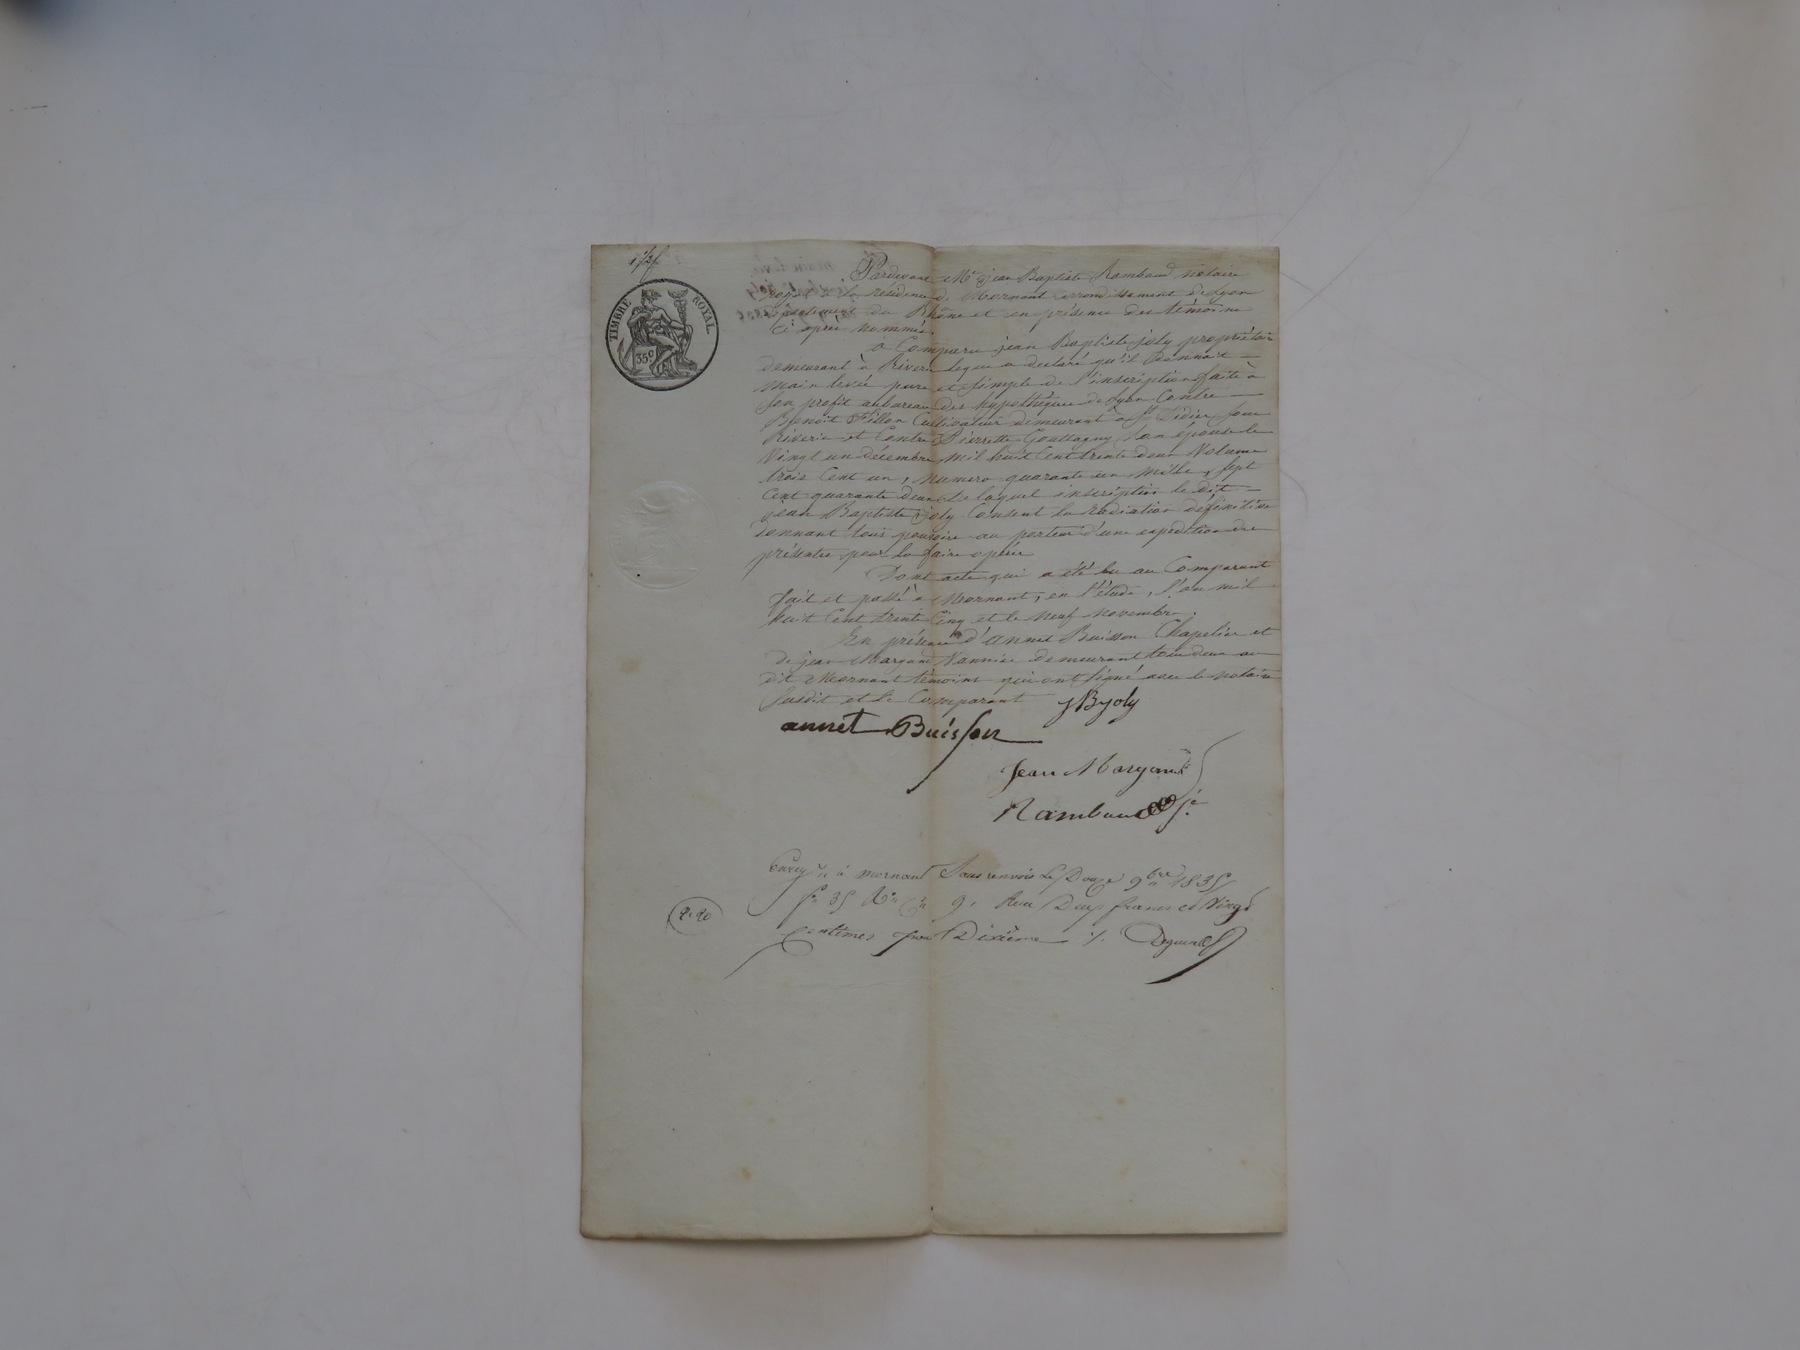 TIMBRE ROYAL
35c
Pardevant Me jean Baptiste Rambaud notaire
royal à la résidence de Mornant arrondissement de Lyon
département du Rhône et en présence des témoins
ci après nommés.
a Comparu jean Baptiste joly propriétaire
demeurant à Riverie lequel a declaré qu'il Donnait
Main levée pure et simple de l'inscription faite à
son profit au bureau des hypothèques de Lyon Contre
Benoit Fillon Cultivateur demeurant à St Didier sous
Riverie et Contre Pierrette Gouttagny son épouse le
Vingt un décembre mil huit Cent trente deux Volume
trois Cent un, Numero quarante un mille, sept
Cent quarante deux De laquel inscription le dit
jean Baptiste joly Consent la radiation définitive
donnant tous pouvoirs au porteur d'une expedition des
présentes pour la faire opérer
Dont acte qui a été lu au Comparant
fait et passé à Mornant, en l'étude, l'an mil
huit Cent trente Cinq et le Neuf Novembre.
En présence d'annet Buisson Chapelier et
de jean Margand Vannier demeurant tous deux au
dit Mornant témoins qui ont signé avec le notaire
susdit et le Comparant
JBjoly
annet Buisson
Jean Margand
Rambaud
à mornant Sans renvois Le Douze 9bre 1835
fo 35 9. Reçu Deux francs et Vingt
2.20
Centimes pour Dixième